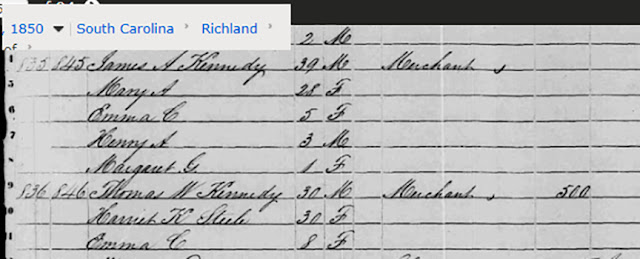 1850 South Carolina Richland
of
2 M
835 845 James A Kennedy 39 M Merchant
5 Mary A 28 F
Emma C 5 F
7 Henry A 3 M
Margaret G. 1 F
9 836 846 Thomas W Kennedy 30 M Merchant 500
Harriet K Steele 30 F
Emma C 8 F